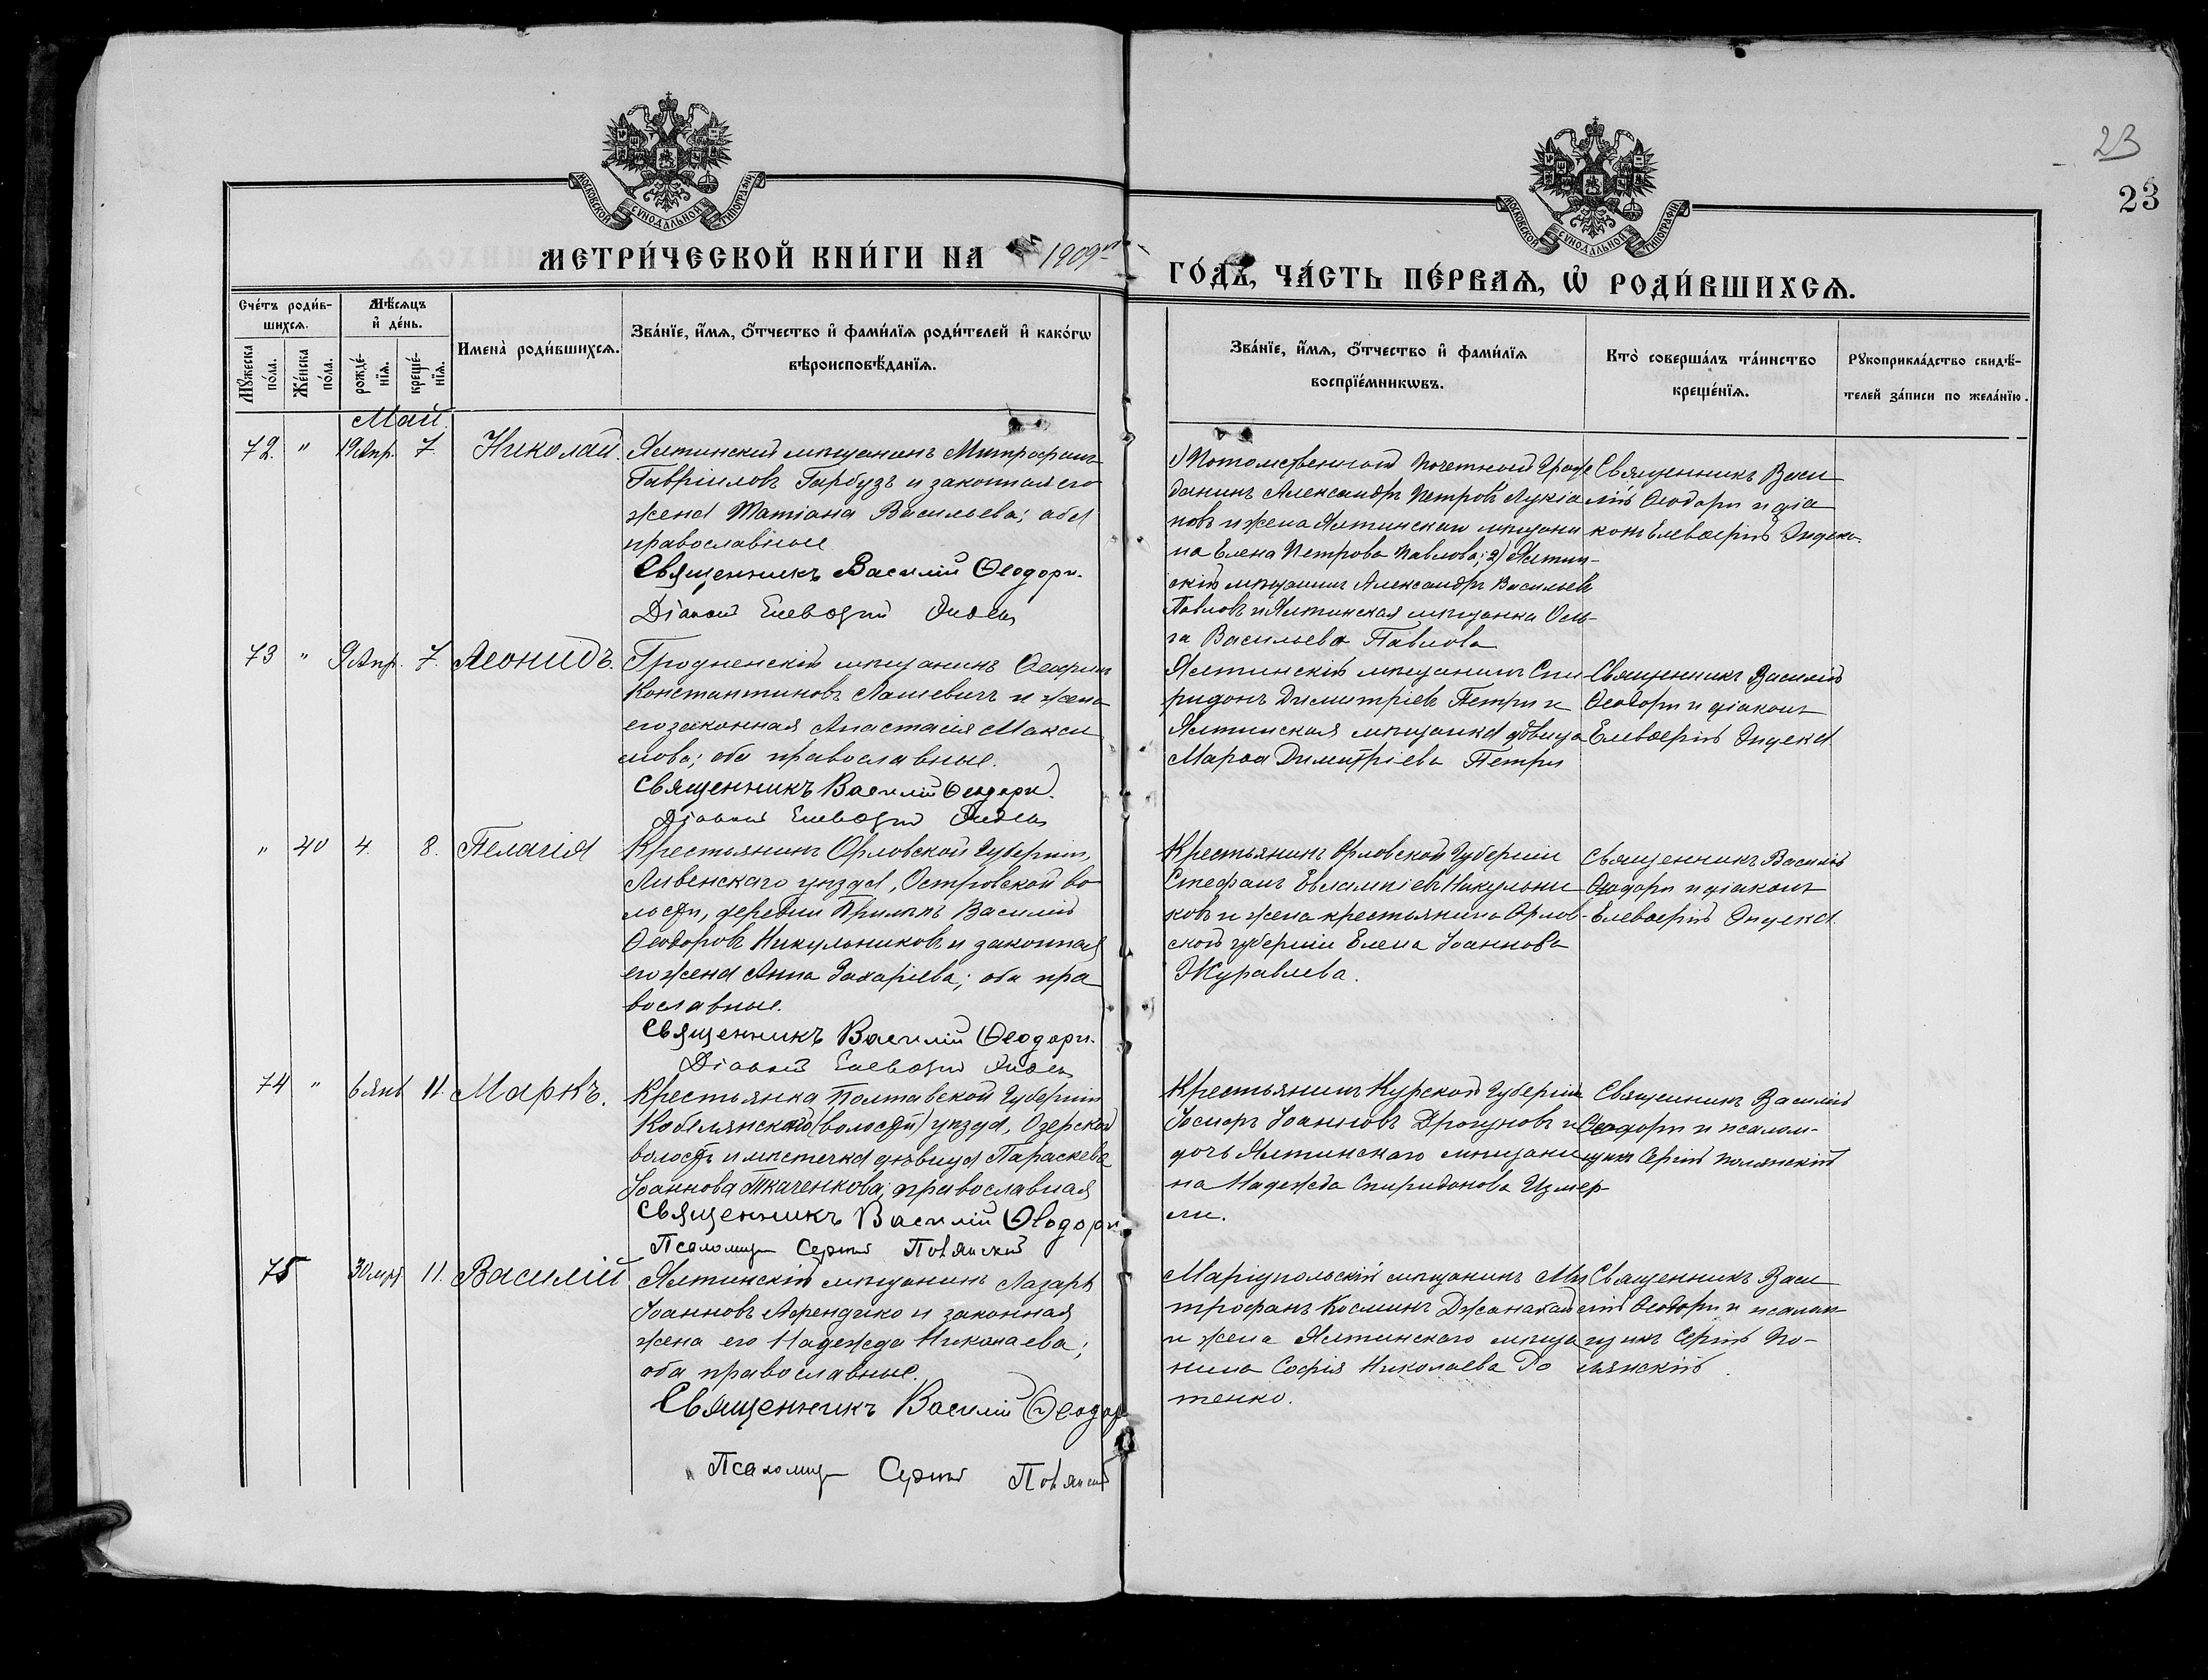 23
23
МОСКОВСКОЙ СУНОДАЛЬНОЙ ТИПОГРАФІИ
МОСКОВСКОЙ СУНОДАЛЬНОЙ ТИПОГРАФІИ
МЕТРИ́ЧЕСКОЙ КНИ́ГИ НА 1909 ГО́ДЪ, ЧА́СТЬ ПЕ́РВАѦ, Ѡ҆ РОДИ́ВШИХСѦ.
Сче́тъ роди́в-
шихсѧ.
Мѣ́сѧцъ
и҆ де́нь.
Мꙋ́жеска
по́ла.
Же́нска
по́ла.
рожде́-
нїѧ.
креще́-
нїѧ.
Имена̀ роди́вшихсѧ.
Зва́нїе, и҆́мѧ, ѻ҆́тчество и҆ фами́лїѧ роди́телей и҆ како́гѡ
вѣроисповѣ́данїѧ.
Зва́нїе, и҆́мѧ, ѻ҆́тчество и҆ фами́лїѧ
воспрїе́мникѡвъ.
Кто̀ соверша́лъ та́инство
креще́нїѧ.
Рꙋкоприкла́дство свидѣ́-
телей за́писи по жела́нїю.
Май
72. " 19 Апр. 7. Николай.
Ялтинский мещанинъ Митрофанъ
Гавріиловъ Гарбузъ и законная его
жена Татіана Васильева; оба
православные
Священникъ Василій Ѳеодори.
Діаконъ Елевѳерій
1) Потомственный Почетный Граж
данинъ Александръ Петровъ Лукіа
новъ и жена Ялтинскаго мещани
на Елена Петрова Павлова; 2) Ялтин-
скій мещанинъ Александръ Васильевъ
Павловъ и Ялтинская мещанка Оль-
га Васильева Павлова
Священникъ Васи
лій Ѳеодори и діа
конъ Елевѳерій Эндека
73 " 9 Апр. 7. Леонидъ.
Гродненскій мещанинъ
Константиновъ Лашевичъ и жена
его законная Анастасія Макси
мова; оба православные.
Священникъ Василій Ѳеодори.
Діаконъ Елевѳерій
Ялтинскій мещанинъ Спи-
ридонъ Димитріевъ Петри и
Ялтинская мещанка дѣвица
Марѳа Димитріева Петри
Священникъ Василій
Ѳеодори и діаконъ
Елевѳерій Эндека
" 40 4. 8. Пелагія
Крестьянинъ Орловской Губерніи,
Ливенскаго уѣзда, Островской во
лости, деревни Василій
Ѳеодоровъ Никульниковъ и законная
его жена Анна Захаріева; оба пра
вославные.
Священникъ Василій Ѳеодори.
Діаконъ Елевѳерій
Крестьянинъ Орловской Губерніи
Стефанъ Евлампіевъ Никульни
ковъ и жена крестьянина Орлов-
ской губерніи Елена Іоаннова
Журавлева.
Священникъ Василій
Ѳеодори и діаконъ
Елевѳерій Эндека
74 " 6 янв 11. Маркъ.
Крестьянка Полтавской Губерніи
Кобелянскаго (волости) уѣзда, Озерской
волости и мѣстечка дѣвица Параскева
Іоаннова Ткаченкова; православная
Священникъ Василій Ѳеодори
Псаломщ Сергій Полянскій
Крестьянинъ Курской Губерніи
Іосифъ Іоанновъ Дрогуновъ и
дочь Ялтинскаго мещани
на Надежда Спиридонова Измер-
ли.
Священникъ Василій
Ѳеодори и псалом-
щикъ Сергій Полянскій
75 30 мрт 11. Василій
Ялтинскій мещанинъ Лазарь
Іоанновъ Афендико и законная
жена его Надежда Николаева;
оба православные.
Священникъ Василій Ѳеодор
Псаломщ Сергій Полянскій
Маріупольскій мещанинъ Ми
трофанъ Косминъ
и жена Ялтинскаго меща
нина Софія Николаева По
тенко.
Священникъ Васи
лій Ѳеодори и псалом-
щикъ Сергій По-
лянскій.